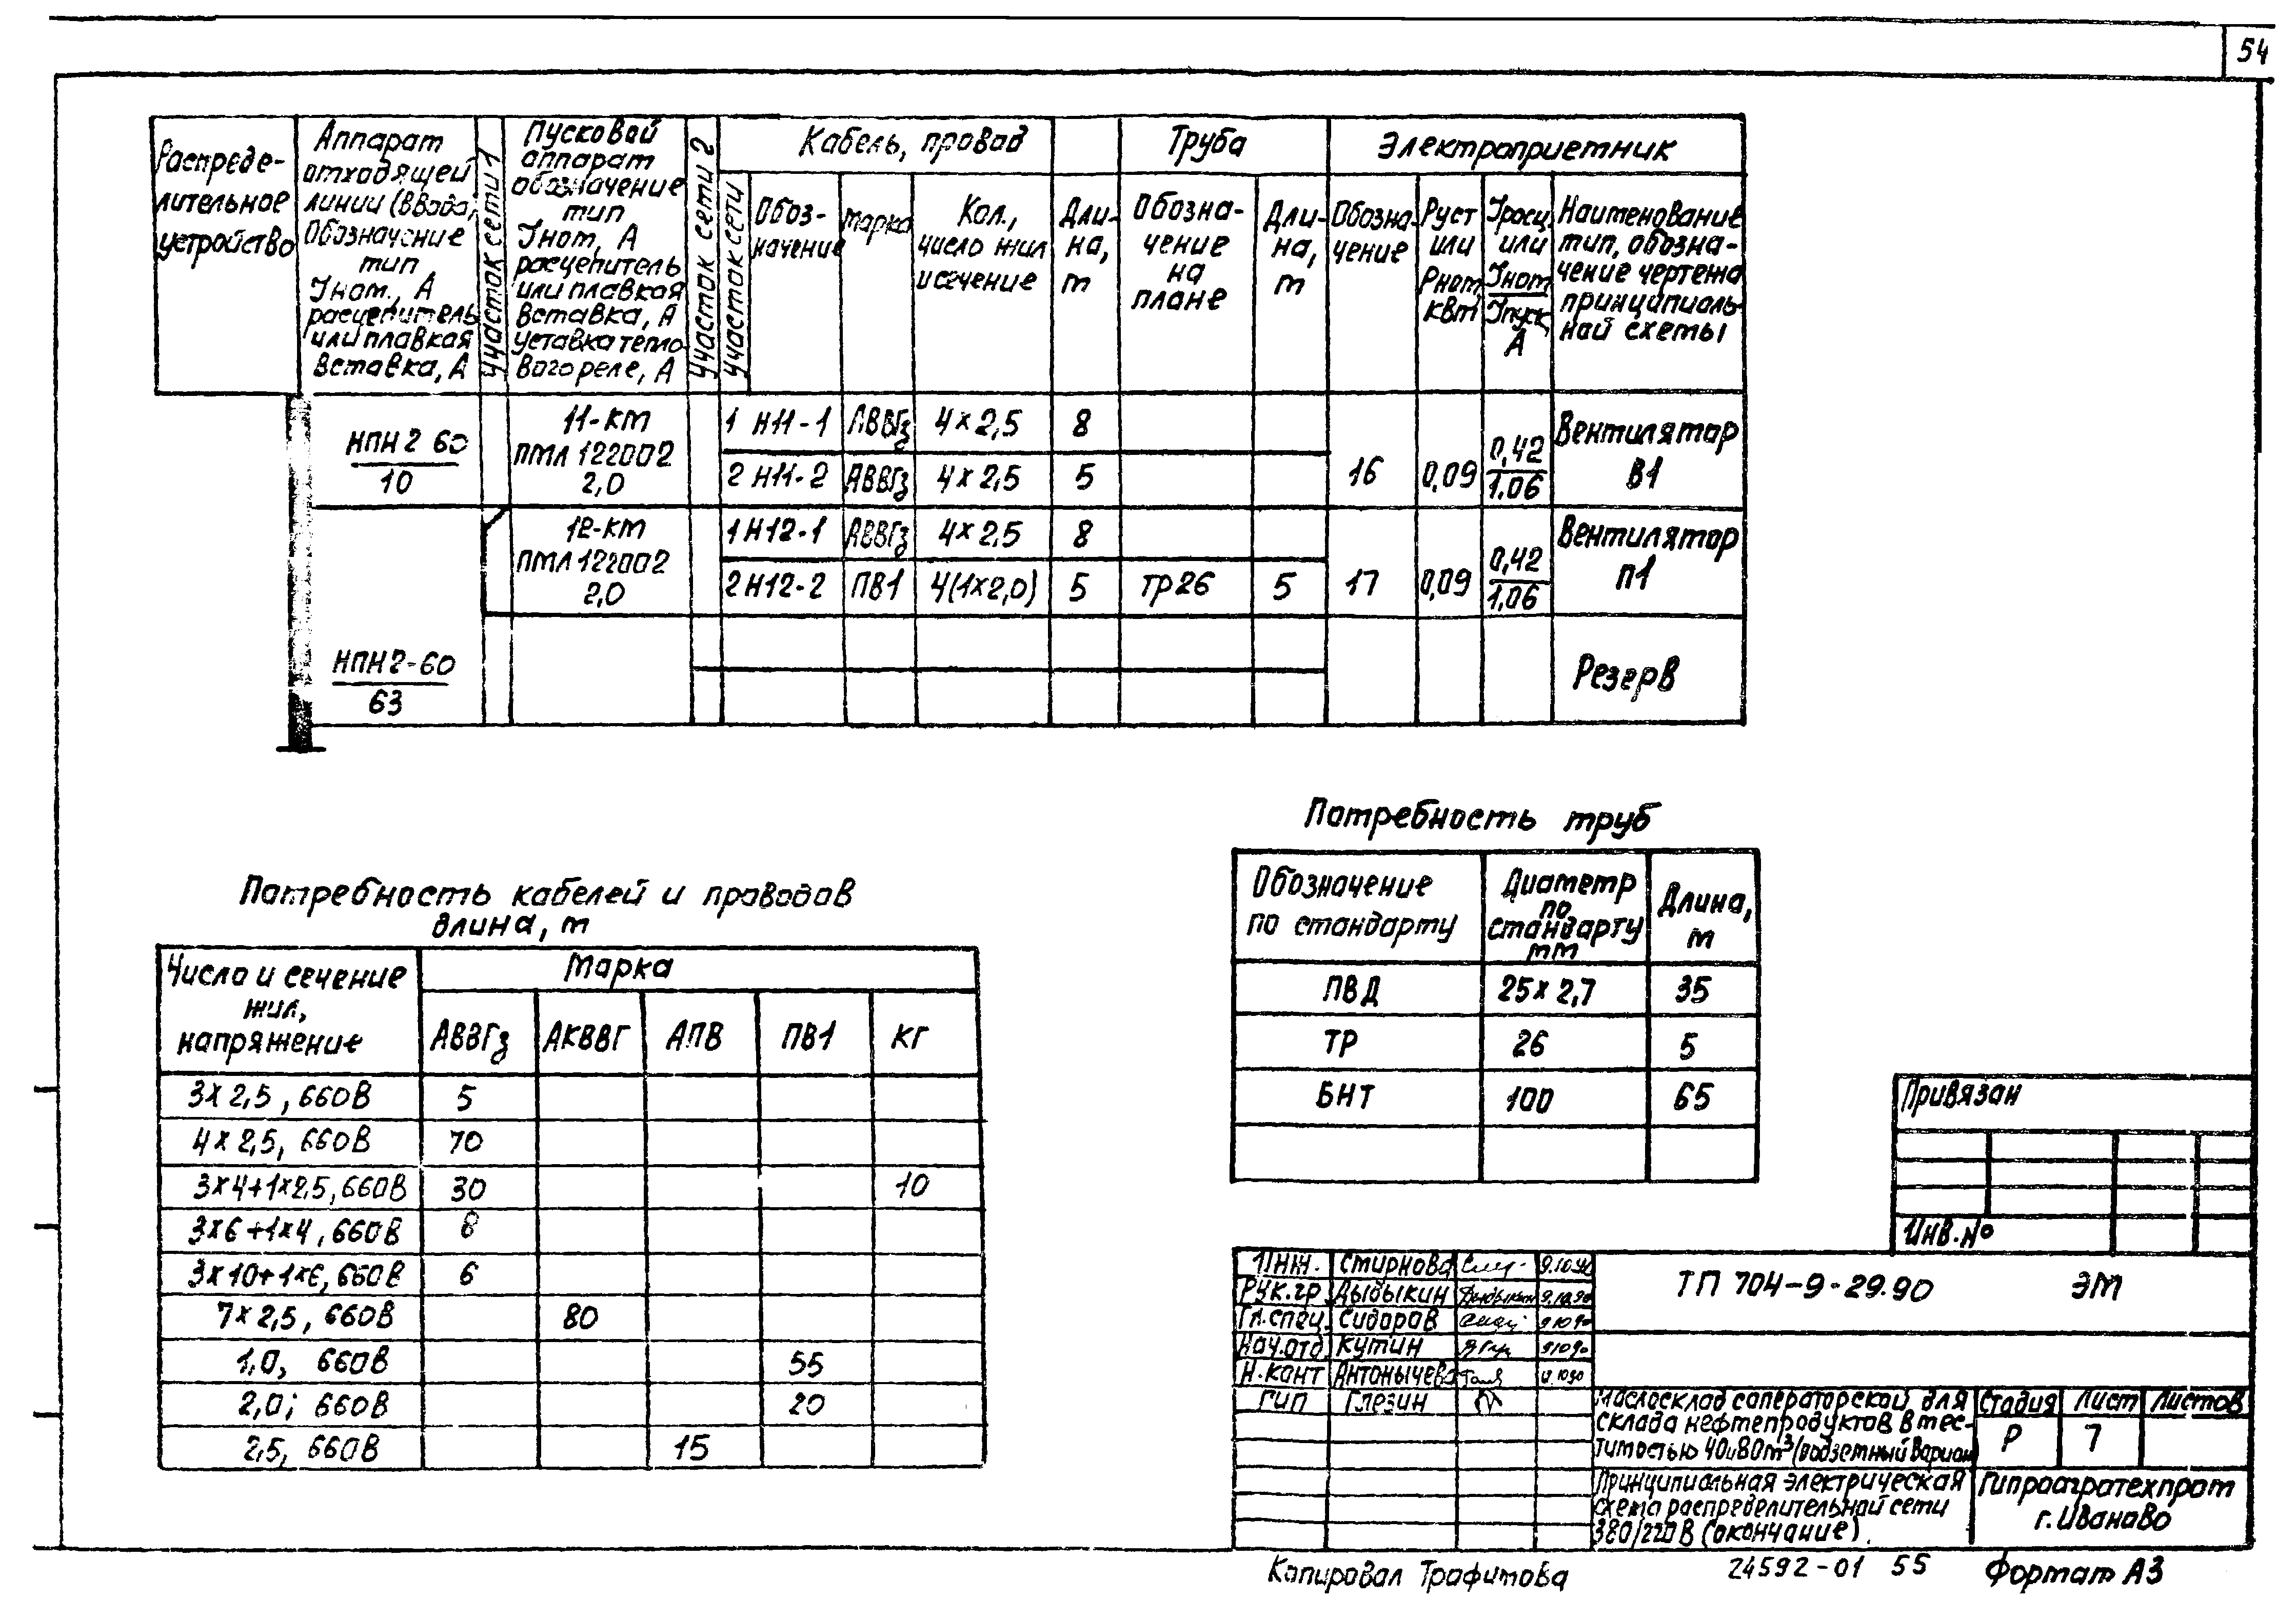 54
Распреде-
лительное
устройство
Аппарат
отходящей
линии (ввода)
Обозначение
тип
Iном., А
расцепитель
или плавкая
вставка, А
Участок сети 1
Пусковой
аппарат
обозначение
тип
Iном, А
расцепитель
или плавкая
вставка, А
уставка тепло-
вого реле, А
Участок сети 2
Кабель, провод
Участок сети
Обоз-
начение
Марка
Кол.,
число жил
и сечение
Дли-
на,
м
Труба
Обозна-
чение
на
плане
Дли-
на,
м
Электроприемник
Обозна-
чение
Руст
или
Рном
кВт
Iрасц.
или
Iном
Iпуск
А
Наименование
тип, обозна-
чение чертежа
принципиаль-
ной схемы
НПН2 60
10
11-КМ
ПМЛ122002
2,0
1 Н11-1 АВВГз 4×2,5 8
2 Н11-2 АВВГз 4×2,5 5
16 0,09 0,42
1,06
Вентилятор
В1
12-КМ
ПМЛ122002
2,0
1 Н12-1 АВВГз 4×2,5 8
2 Н12-2 ПВ1 4(1×2,0) 5 ТР26 5
17 0,09 0,42
1,06
Вентилятор
П1
НПН2-60
63
Резерв
Потребность кабелей и проводов
длина, м
Число и сечение
жил,
напряжение
Марка
АВВГз АКВВГ АПВ ПВ1 КГ
3×2,5, 660В 5
4×2,5, 660В 70
3×4+1×2,5, 660В 30 10
3×6+1×4, 660В 8
3×10+1×6, 660В 6
7×2,5, 660В 80
1,0, 660В 55
2,0; 660В 20
2,5, 660В 15
Потребность труб
Обозначение
по стандарту
Диаметр
по
стандарту
мм
Длина,
м
ПВД 25×2,7 35
ТР 26 5
БНТ 100 65
Привязан
Инв.№
Инж. Смирнова 9.10.90
Рук.гр. Дыдыкин 9.10.90
Гл.спец. Сидоров 9.10.90
Нач.отд. Кутин 9.10.90
Н.конт Антонычева
ГИП Глезин
ТП 704-9-29.90 ЭМ
Маслосклад с операторской для
склада нефтепродуктов вмес-
тимостью 40и80м³ (подземный вариан
Стадия Лист Листов
Р 7
Принципиальная электрическая
схема распределительной сети
380/220В (окончание).
Гипроагротехпром
г.Иваново
Копировал Трафимова
24592-01 55
Формат А3